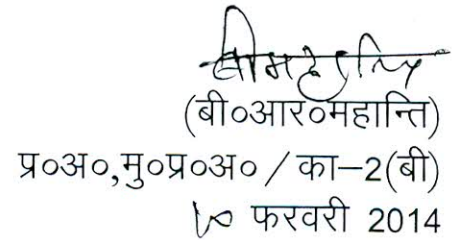 (बी०आर०महान्ति)
प्र०अ०,मु०प्र०अ० / का–2(बी)
फरवरी 2014